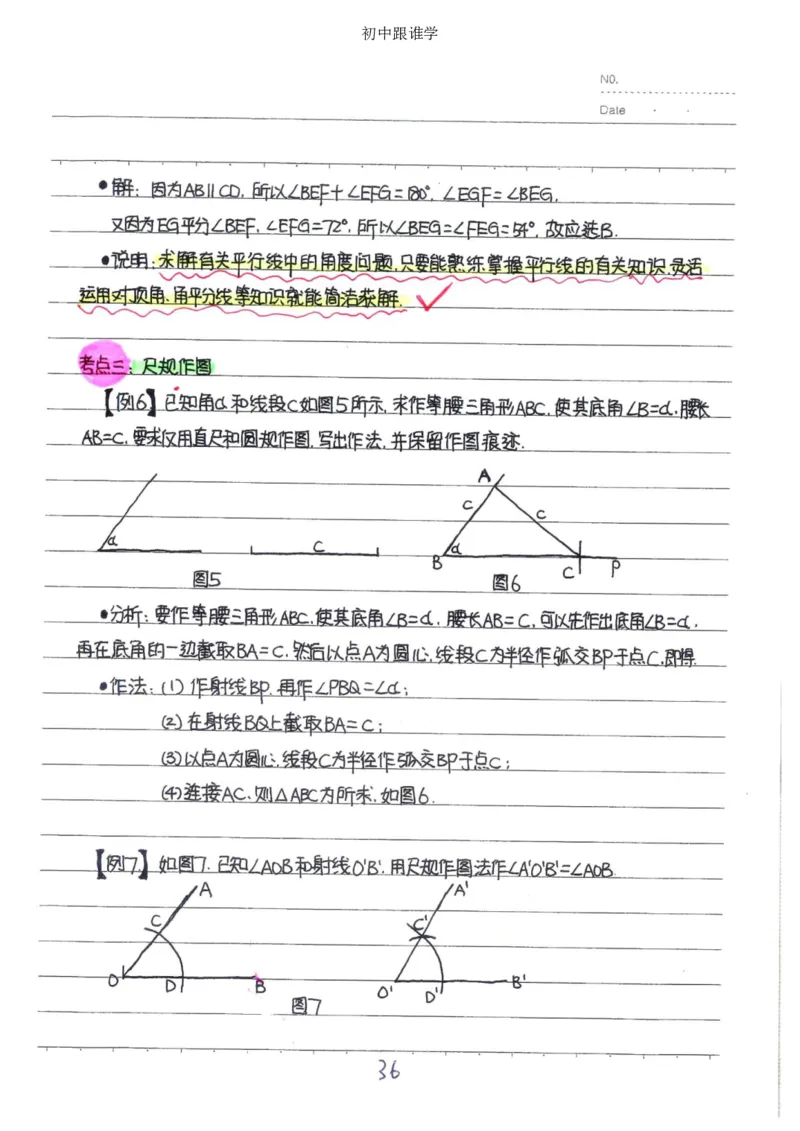 初中跟谁学
NO.
Date
•解：因为AB∥CD，所以∠BEF+∠EFG=180°，∠EGF=∠BEG，
又因为EG平分∠BEF，∠EFG=72°，所以∠BEG=∠FEG=54°，故应选B.
•说明：求解有关平行线中的角度问题，只要能熟练掌握平行线的有关知识，灵活
运用对顶角、角平分线等知识就能简洁获解.
考点三：尺规作图
【例6】已知角α和线段C如图5所示，求作等腰三角形ABC，使其底角∠B=α，腰长
AB=C，要求仅用直尺和圆规作图，写出作法，并保留作图痕迹.
α
C
图5
A
C
C
B
α
C
P
图6
•分析：要作等腰三角形ABC，使其底角∠B=α，腰长AB=C，可以先作出底角∠B=α，
再在底角的一边截取BA=C，然后以点A为圆心，线段C为半径作弧交BP于点C，即得.
•作法：(1)作射线BP，再作∠PBQ=∠α；
(2)在射线BQ上截取BA=C；
(3)以点A为圆心，线段C为半径作弧交BP于点C；
(4)连接AC，则△ABC为所求，如图6.
【例7】如图7，已知∠AOB和射线O'B'，用尺规作图法作∠A'O'B'=∠AOB.
A
C
O
D
B
A'
C'
O'
D'
B'
图7
36